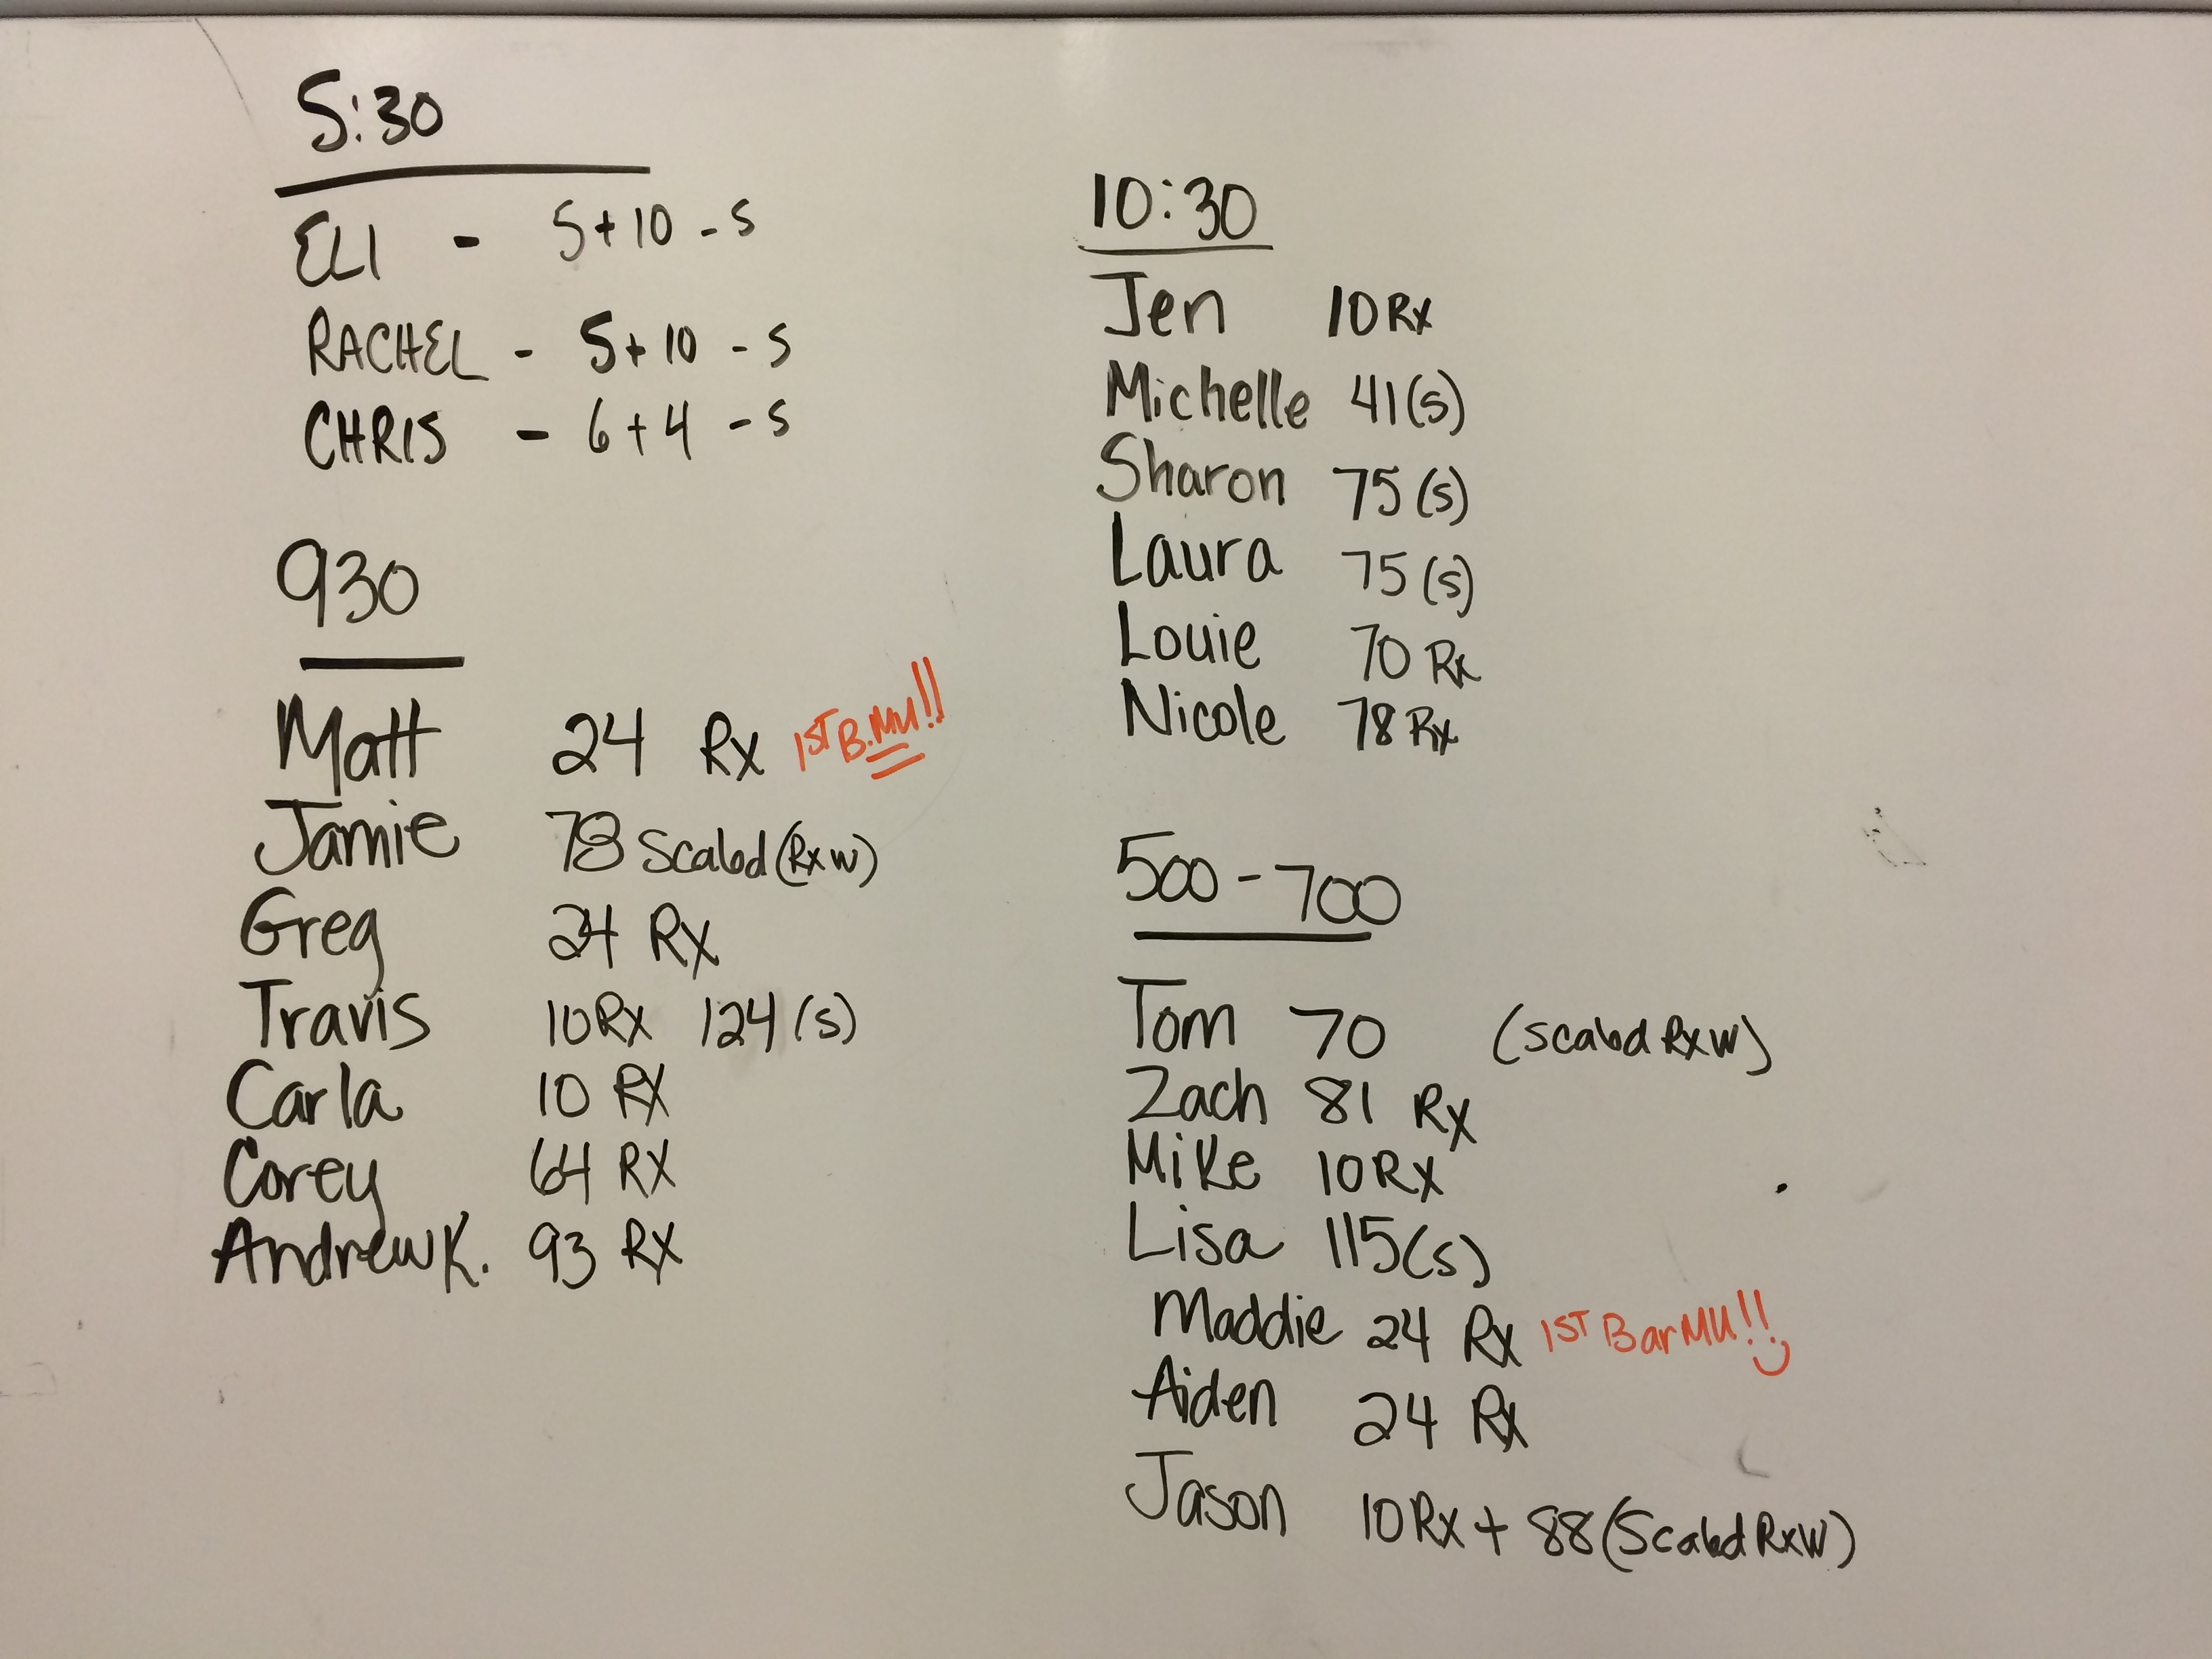 5:30
ELI - 5+10 - S
RACHEL - 5+10 - S
CHRIS - 6+4 - S
930
Matt 24 Rx 1ST B.MU!!
Jamie 78 Scaled (RxW)
Greg 24 Rx
Travis 10Rx 124(s)
Carla 10 RX
Corey 64 RX
Andrew K. 93 RX
10:30
Jen 10 Rx
Michelle 41(s)
Sharon 75(s)
Laura 75(s)
Louie 70 Rx
Nicole 78 Rx
500-700
Tom 70 (Scaled RxW)
Zach 81 Rx
Mike 10RX
Lisa 115(s)
Maddie 24 Rx 1ST Bar MU!!
Aiden 24 Rx
Jason 10Rx + 88 (Scaled RxW)